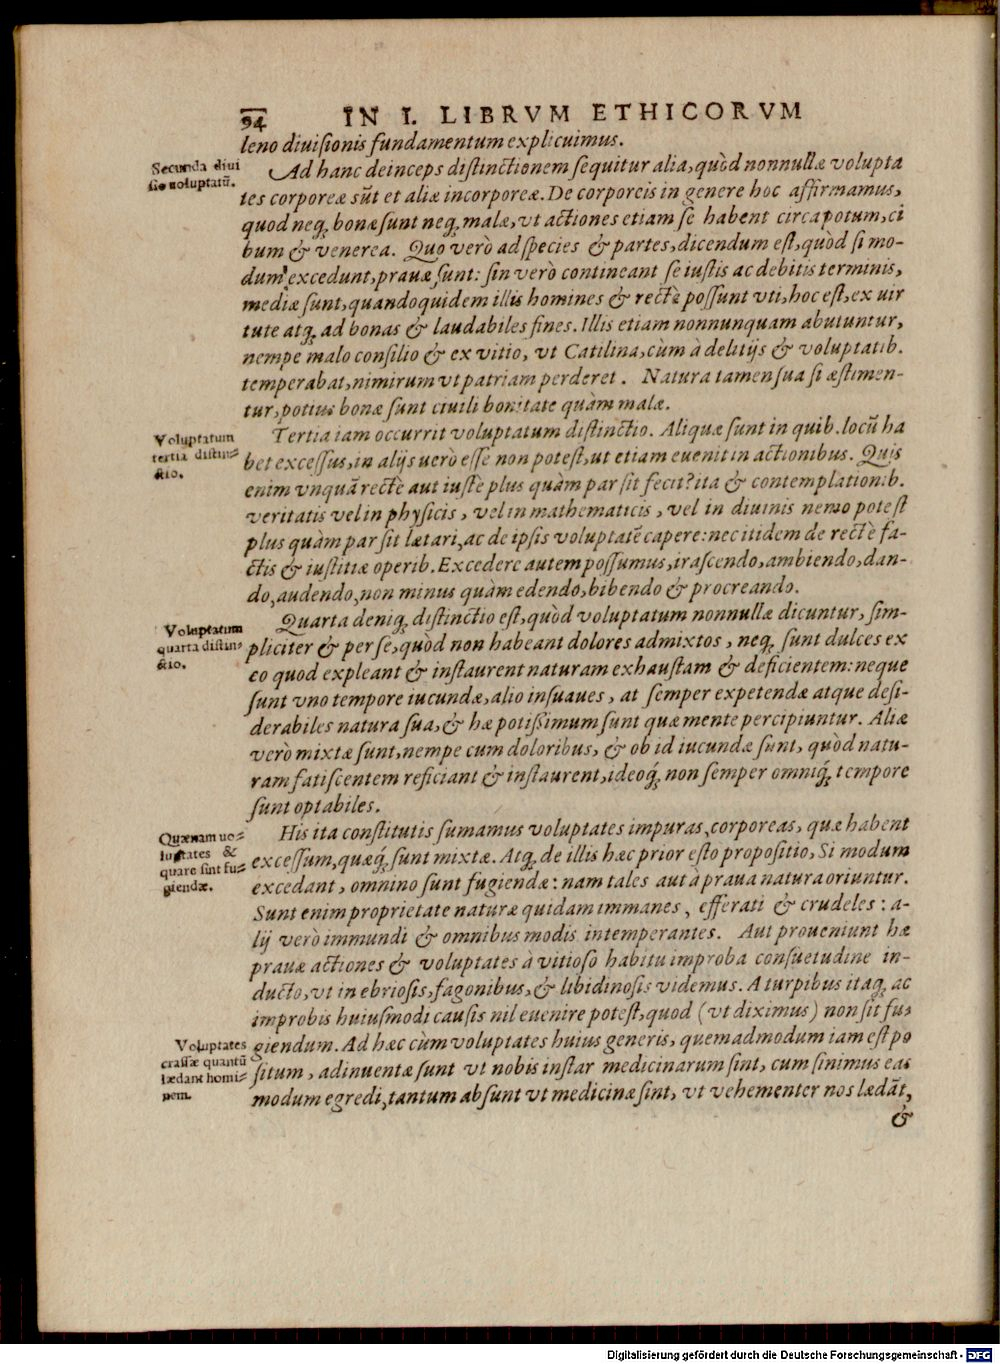 94 IN I. LIBRVM ETHICORVM
leno diuisionis fundamentum explicuimus.
Secunda diui
sio uoluptatū.
Ad hanc deinceps distinctionem sequitur alia, quòd nonnullæ volupta
tes corporeæ sūt et aliæ incorporeæ. De corporeis in genere hoc affirmamus,
quod neq; bonæ sunt neq; malæ, vt actiones etiam se habent circa potum, ci
bum & venerea. Quo verò ad species & partes, dicendum est, quòd si mo-
dum excedunt, prauæ sunt: sin verò contineant se iustis ac debitis terminis,
mediæ sunt, quandoquidem illis homines & rectè possunt vti, hoc est, ex uir
tute atq; ad bonas & laudabiles fines. Illis etiam nonnunquam abutuntur,
nempe malo consilio & ex vitio, vt Catilina, cùm à delitijs & voluptatib.
temperabat, nimirum vt patriam perderet. Natura tamen sua si æstimen-
tur, potius bonæ sunt ciuili bonitate quàm malæ.
Voluptatum
tertia distin=
ctio.
Tertia iam occurrit voluptatum distinctio. Aliquæ sunt in quib. locū ha
bet excessus, in alijs uerò esse non potest, ut etiam euenit in actionibus. Quis
enim vnquā rectè aut iustè plus quàm par sit fecit? ita & contemplationib.
veritatis vel in physicis, vel in mathematicis, vel in diuinis nemo potest
plus quàm par sit lætari, ac de ipsis voluptatē capere: nec itidem de rectè fa-
ctis & iustitiæ operib. Excedere autem possumus, irascendo, ambiendo, dan-
do, audendo, non minus quàm edendo, bibendo & procreando.
Voluptatum
quarta distin=
ctio.
Quarta deniq; distinctio est, quòd voluptatum nonnullæ dicuntur, sim-
pliciter & per se, quòd non habeant dolores admixtos, neq; sunt dulces ex
eo quod expleant & instaurent naturam exhaustam & deficientem: neque
sunt vno tempore iucundæ, alio insuaues, at semper expetendæ atque desi-
derabiles natura sua, & hæ potißimum sunt quæ mente percipiuntur. Aliæ
verò mixtæ sunt, nempe cum doloribus, & ob id iucundæ sunt, quòd natu-
ram fatiscentem reficiant & instaurent, ideoq́; non semper omniq́; tempore
sunt optabiles.
Quænam uo=
luptates &
quare sint fu=
giendæ.
His ita constitutis sumamus voluptates impuras, corporeas, quæ habent
excessum, quæq́; sunt mixtæ. Atq; de illis hæc prior esto propositio, Si modum
excedant, omnino sunt fugiendæ: nam tales aut à praua natura oriuntur.
Sunt enim proprietate naturæ quidam immanes, efferati & crudeles: a-
lij verò immundi & omnibus modis intemperantes. Aut proueniunt hæ
prauæ actiones & voluptates à vitioso habitu improba consuetudine in-
ducto, vt in ebriosis, fagonibus, & libidinosis videmus. A turpibus itaq; ac
improbis huiusmodi causis nil euenire potest, quod (vt diximus) non sit fu=
Voluptates
crassæ quantū
lædant homi=
nem.
giendum. Ad hæc cùm voluptates huius generis, quemadmodum iam est po
situm, adinuentæ sunt vt nobis instar medicinarum sint, cum sinimus eas
modum egredi, tantum absunt vt medicinæ sint, vt vehementer nos lædāt,
&
Digitalisierung gefördert durch die Deutsche Forschungsgemeinschaft - DFG